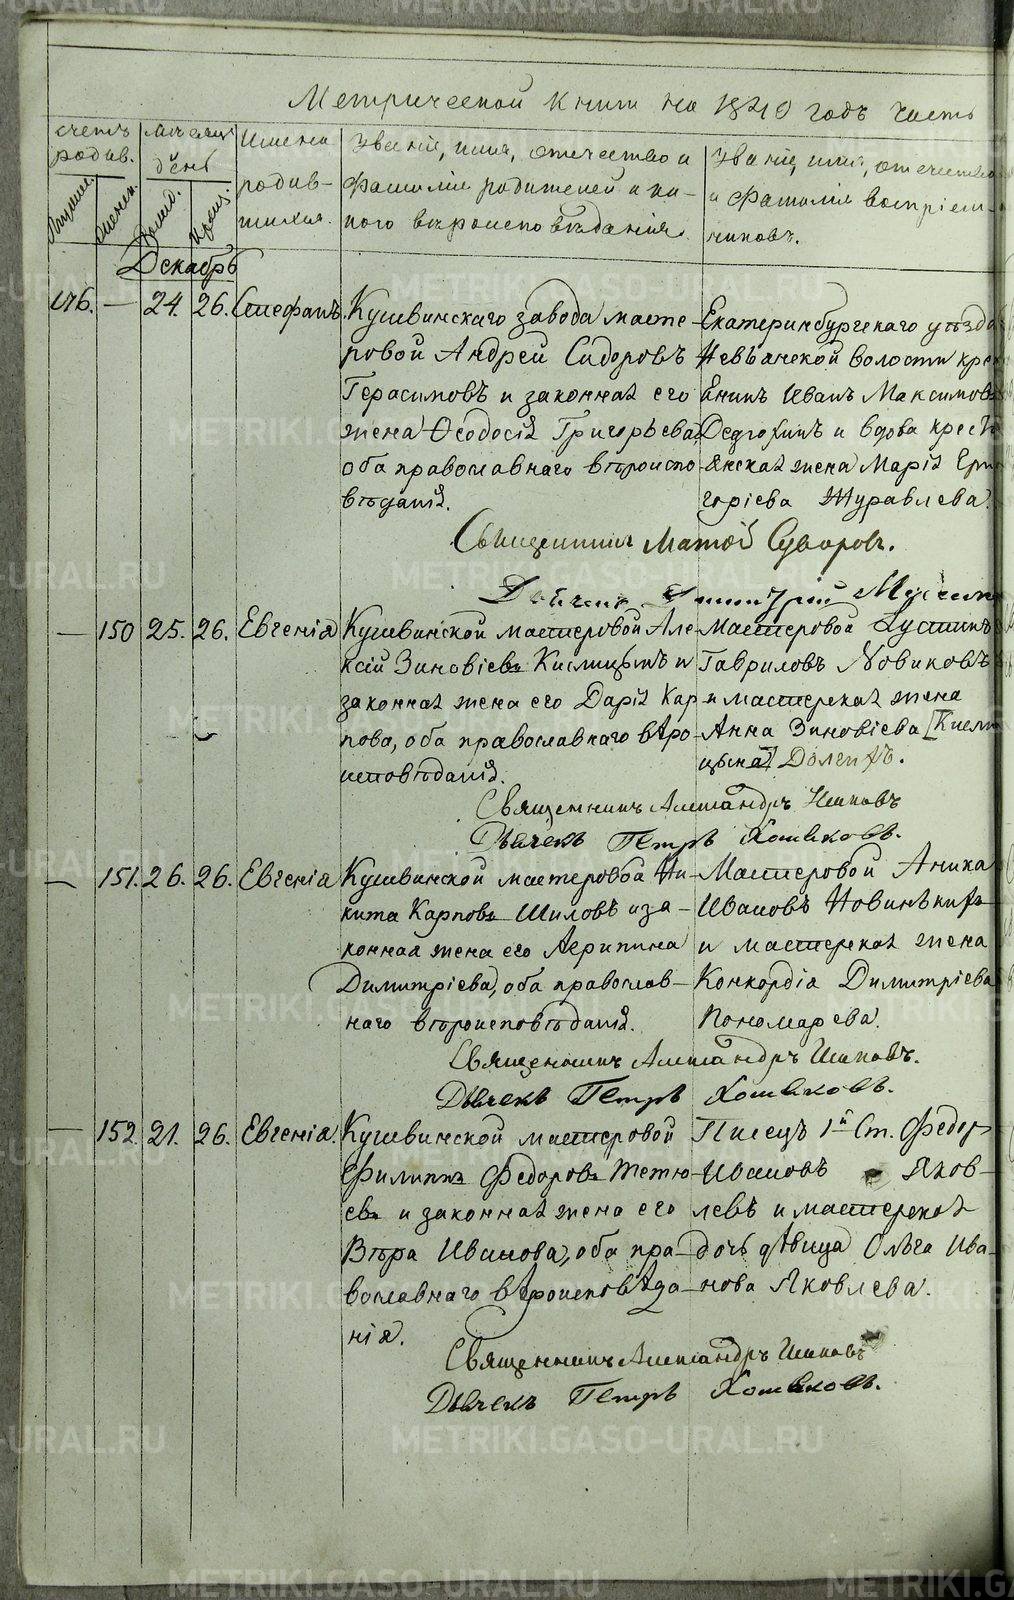 Метрической книги на 18 годъ часть
счетъ родив.
мѣсяцъ день
Имена родив-
шихся.
Званіе, имя, отчество и
фамилія родителей и ка-
кого вѣроисповѣданія.
Званіе, имя, отчество
и фамилія воспріем-
никовъ.
Декабрь
176. — 24. 26. Стефанъ.
Кушвинскаго завода масте-
ровой Андрей Сидоровъ
Герасимовъ и законная его
жена Ѳеодосія Григорьева
оба православнаго вѣроиспо-
вѣданія.
Екатеринбургскаго уѣзда
Невьянской волости кре
Иванъ Максимовъ
и вдова кресть
янская жена Марія Гри
горіева Журавлева.
Священникъ Суворовъ.
— 150 25. 26. Евгенія
Кушвинской мастеровой Але-
ксій Зиновіевъ Кислицынъ и
законная жена его Дарія Кар
пова, оба православнаго вѣро-
исповѣданія.
Мастеровой Іустинъ
Гавриловъ Новиковъ
и мастерская жена
Анна Зиновіева [Кисли
цына]
Священникъ Александръ
Дьячекъ Петръ Хошковъ.
— 151. 26. 26. Евгенія
Кушвинской мастеровой Ни-
кита Карповъ Шиловъ и за-
конная жена его Агрипина
Димитріева, оба православ-
наго вѣроисповѣданія.
Мастеровой Аника
Ивановъ Новинькихъ
и мастерская жена
Конкордія Димитріева
Пономарева.
Священникъ Александръ
Дьячекъ Петръ Хошковъ.
— 152. 21. 26. Евгенія.
Кушвинской мастеровой
Филиппъ Федоровъ Тетю-
евъ и законная жена его
Вѣра Иванова, оба пра-
вославнаго вѣроисповѣда-
нія.
Писецъ 1й Ст. Федоръ
Ивановъ Яков-
левъ и мастерская
дочь дѣвица Ольга Ива-
нова Яковлева.
Священникъ Александръ
Дьячекъ Петръ Хошковъ.
METRIKI.GASO-URAL.RU